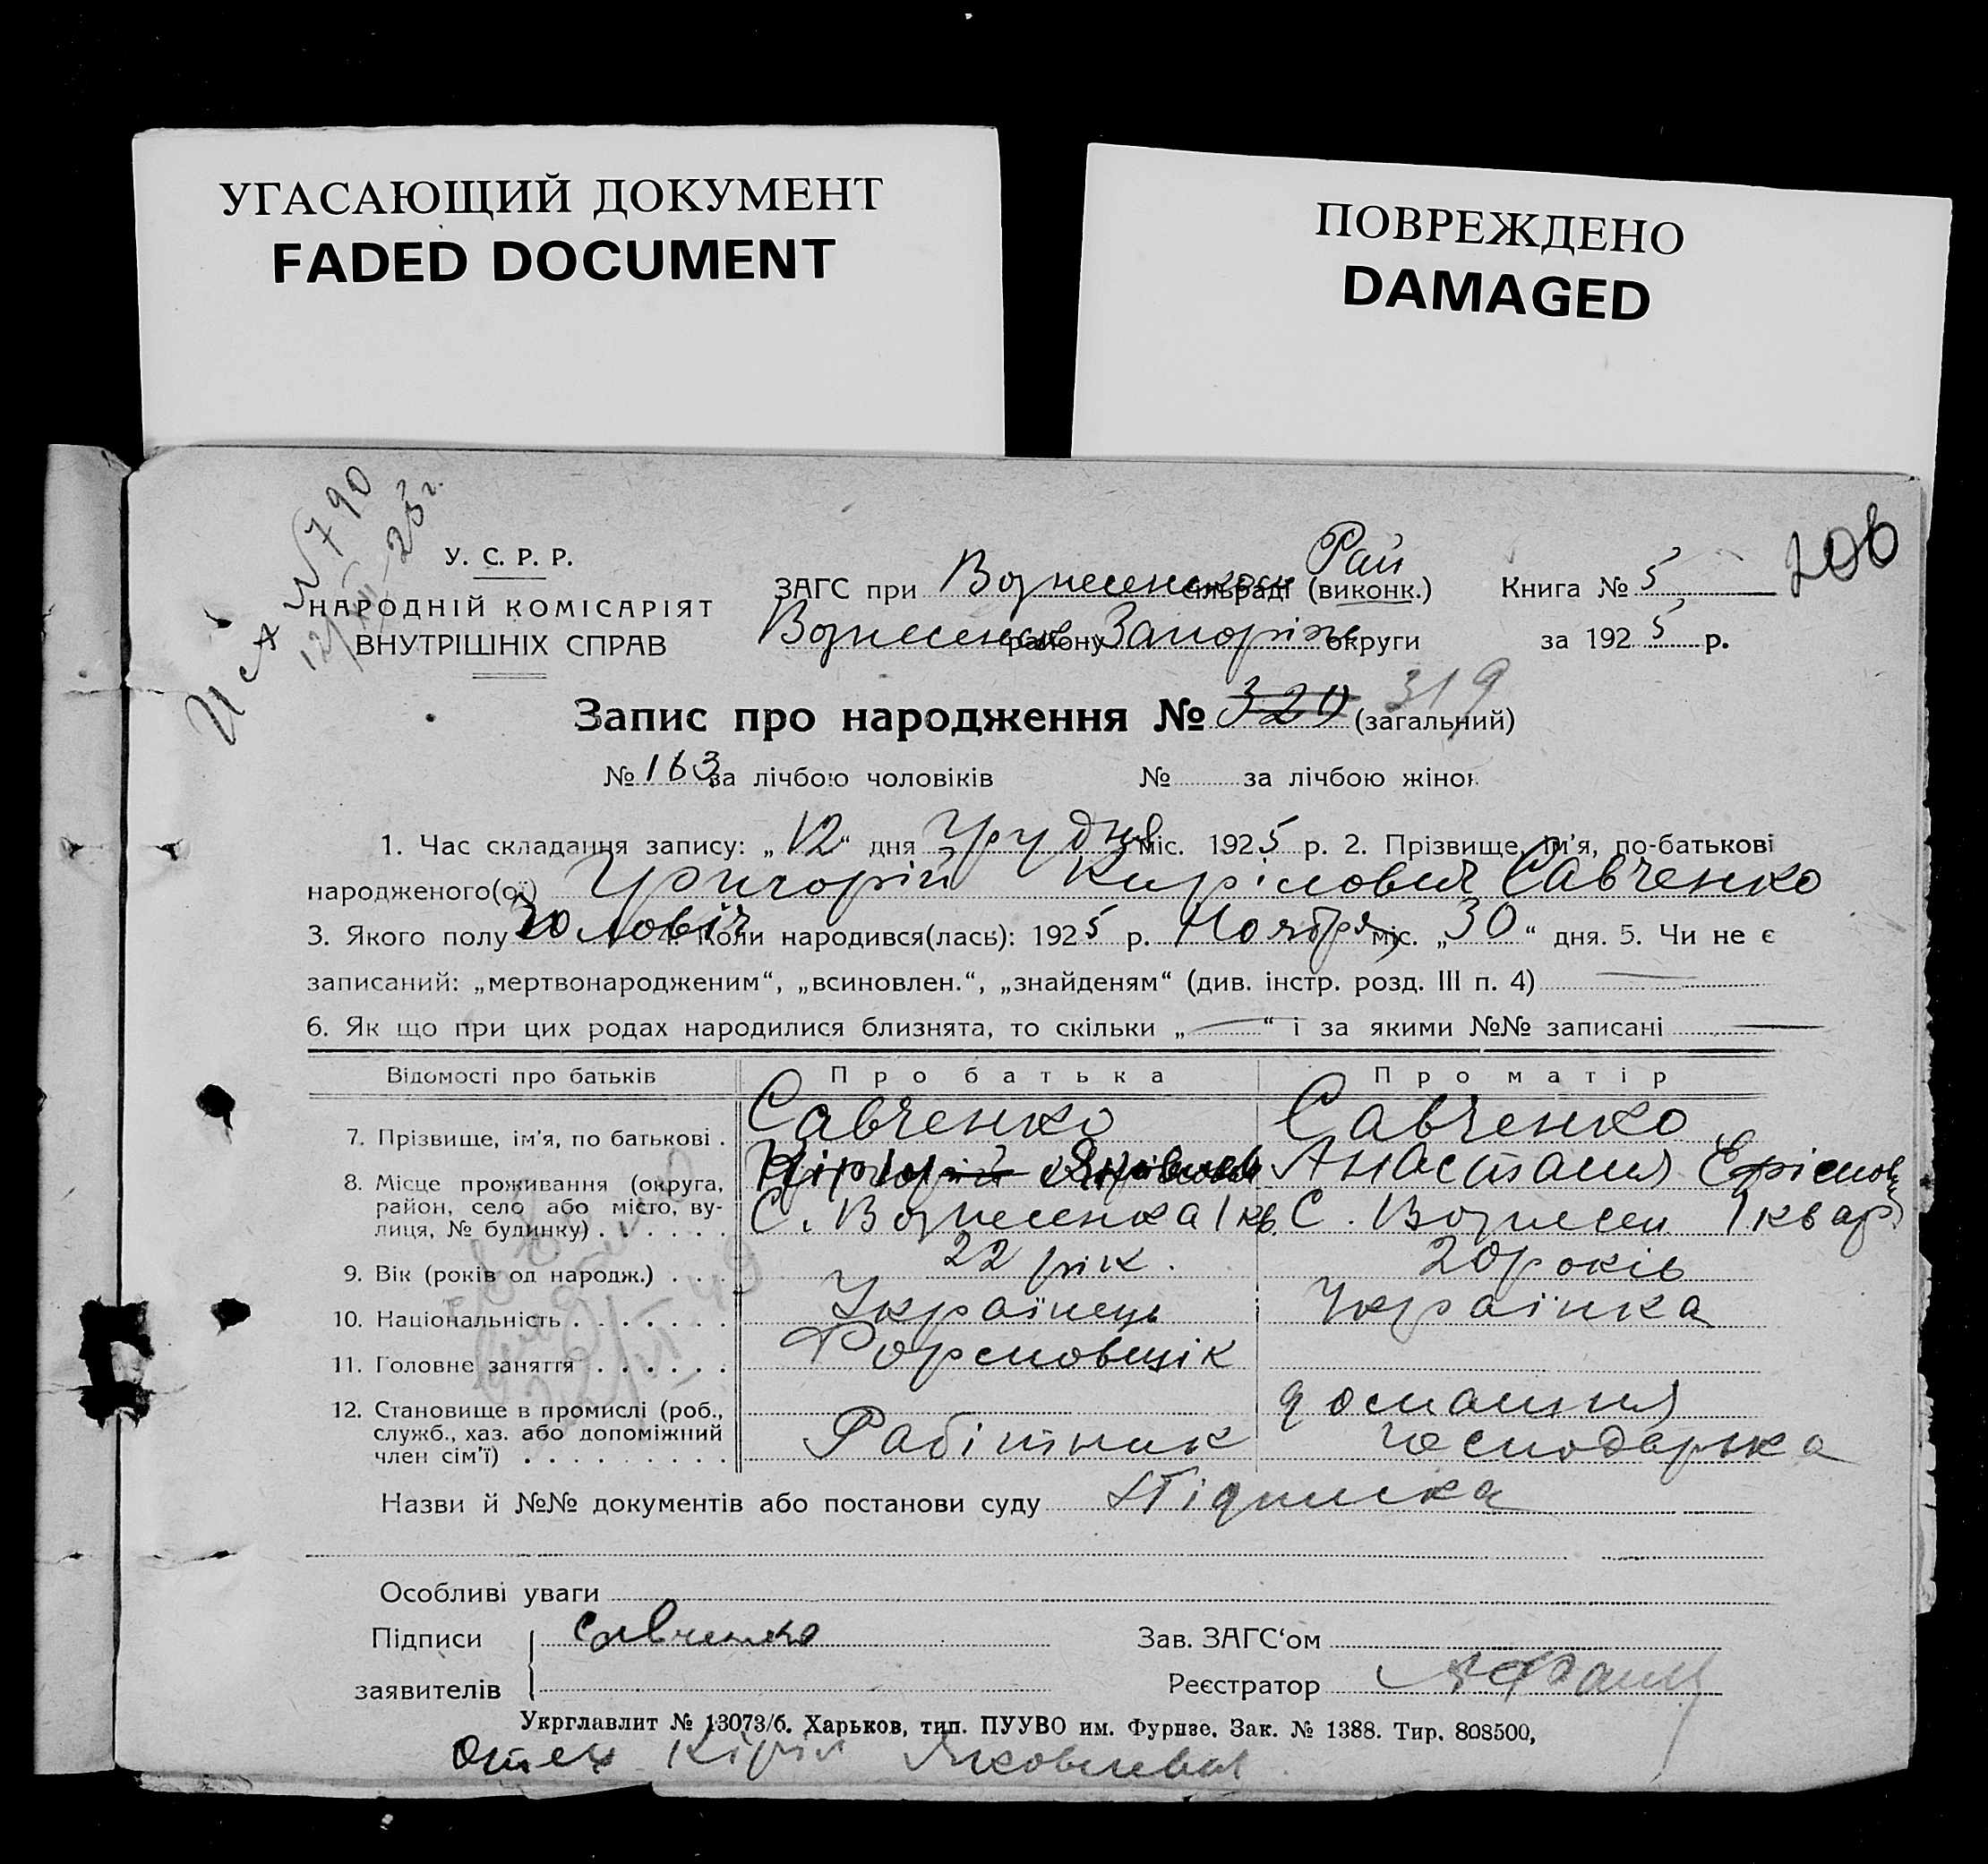 УГАСАЮЩИЙ ДОКУМЕНТ
FADED DOCUMENT
ПОВРЕЖДЕНО
DAMAGED
№ 790
206
У. С. Р. Р.
НАРОДНІЙ КОМІСАРІЯТ
ВНУТРІШНІХ СПРАВ
Рай
ЗАГС при Вознесенском сільраді (виконк.) Книга № 5
Вознесенск району Запоріж округи за 1925 р.
Запис про народження № 320 319 (загальний)
№ 163 за лічбою чоловіків № за лічбою жінок
1. Час складання запису: „12“ дня Грудня міс. 1925 р. 2. Прізвище, ім'я, по-батькові
народженого(ої) Григорій Кирілович Савченко
3. Якого полу Чоловіч 4. Коли народився(лась): 1925 р. Ноября міс. „30“ дня. 5. Чи не є
записаний: „мертвонародженим“, „всиновлен.“, „знайденям“ (див. інстр. розд. III п. 4)
6. Як що при цих родах народилися близнята, то скільки „—“ і за якими №№ записані —
Відомості про батьків Про батька Про матір
7. Прізвище, ім'я, по батькові . Савченко Савченко
Анастасия
8. Місце проживання (округа, район, село або місто, вулиця, № будинку) . . . . . . С. Вознесенка 1 кв. С. Вознесен 1 квар
9. Вік (років од народж.) . . . 22 рік. 20 років
10. Національність . . . . . . . Українець Українка
11. Головне заняття . . . . . . Формовщік
12. Становище в промислі (роб., служб., хаз. або допоміжний член сім'ї) . . . . . . . . . Рабітник домашня господарька
Назви й №№ документів або постанови суду Підписка
Особливі уваги
Підписи Савченко Зав. ЗАГС'ом
заявителів Реєстратор
Укрглавлит № 13073/б. Харьков, тип. ПУУВО им. Фрунзе. Зак. № 1388. Тир. 808500,
Отец Кіріл Яковлевич